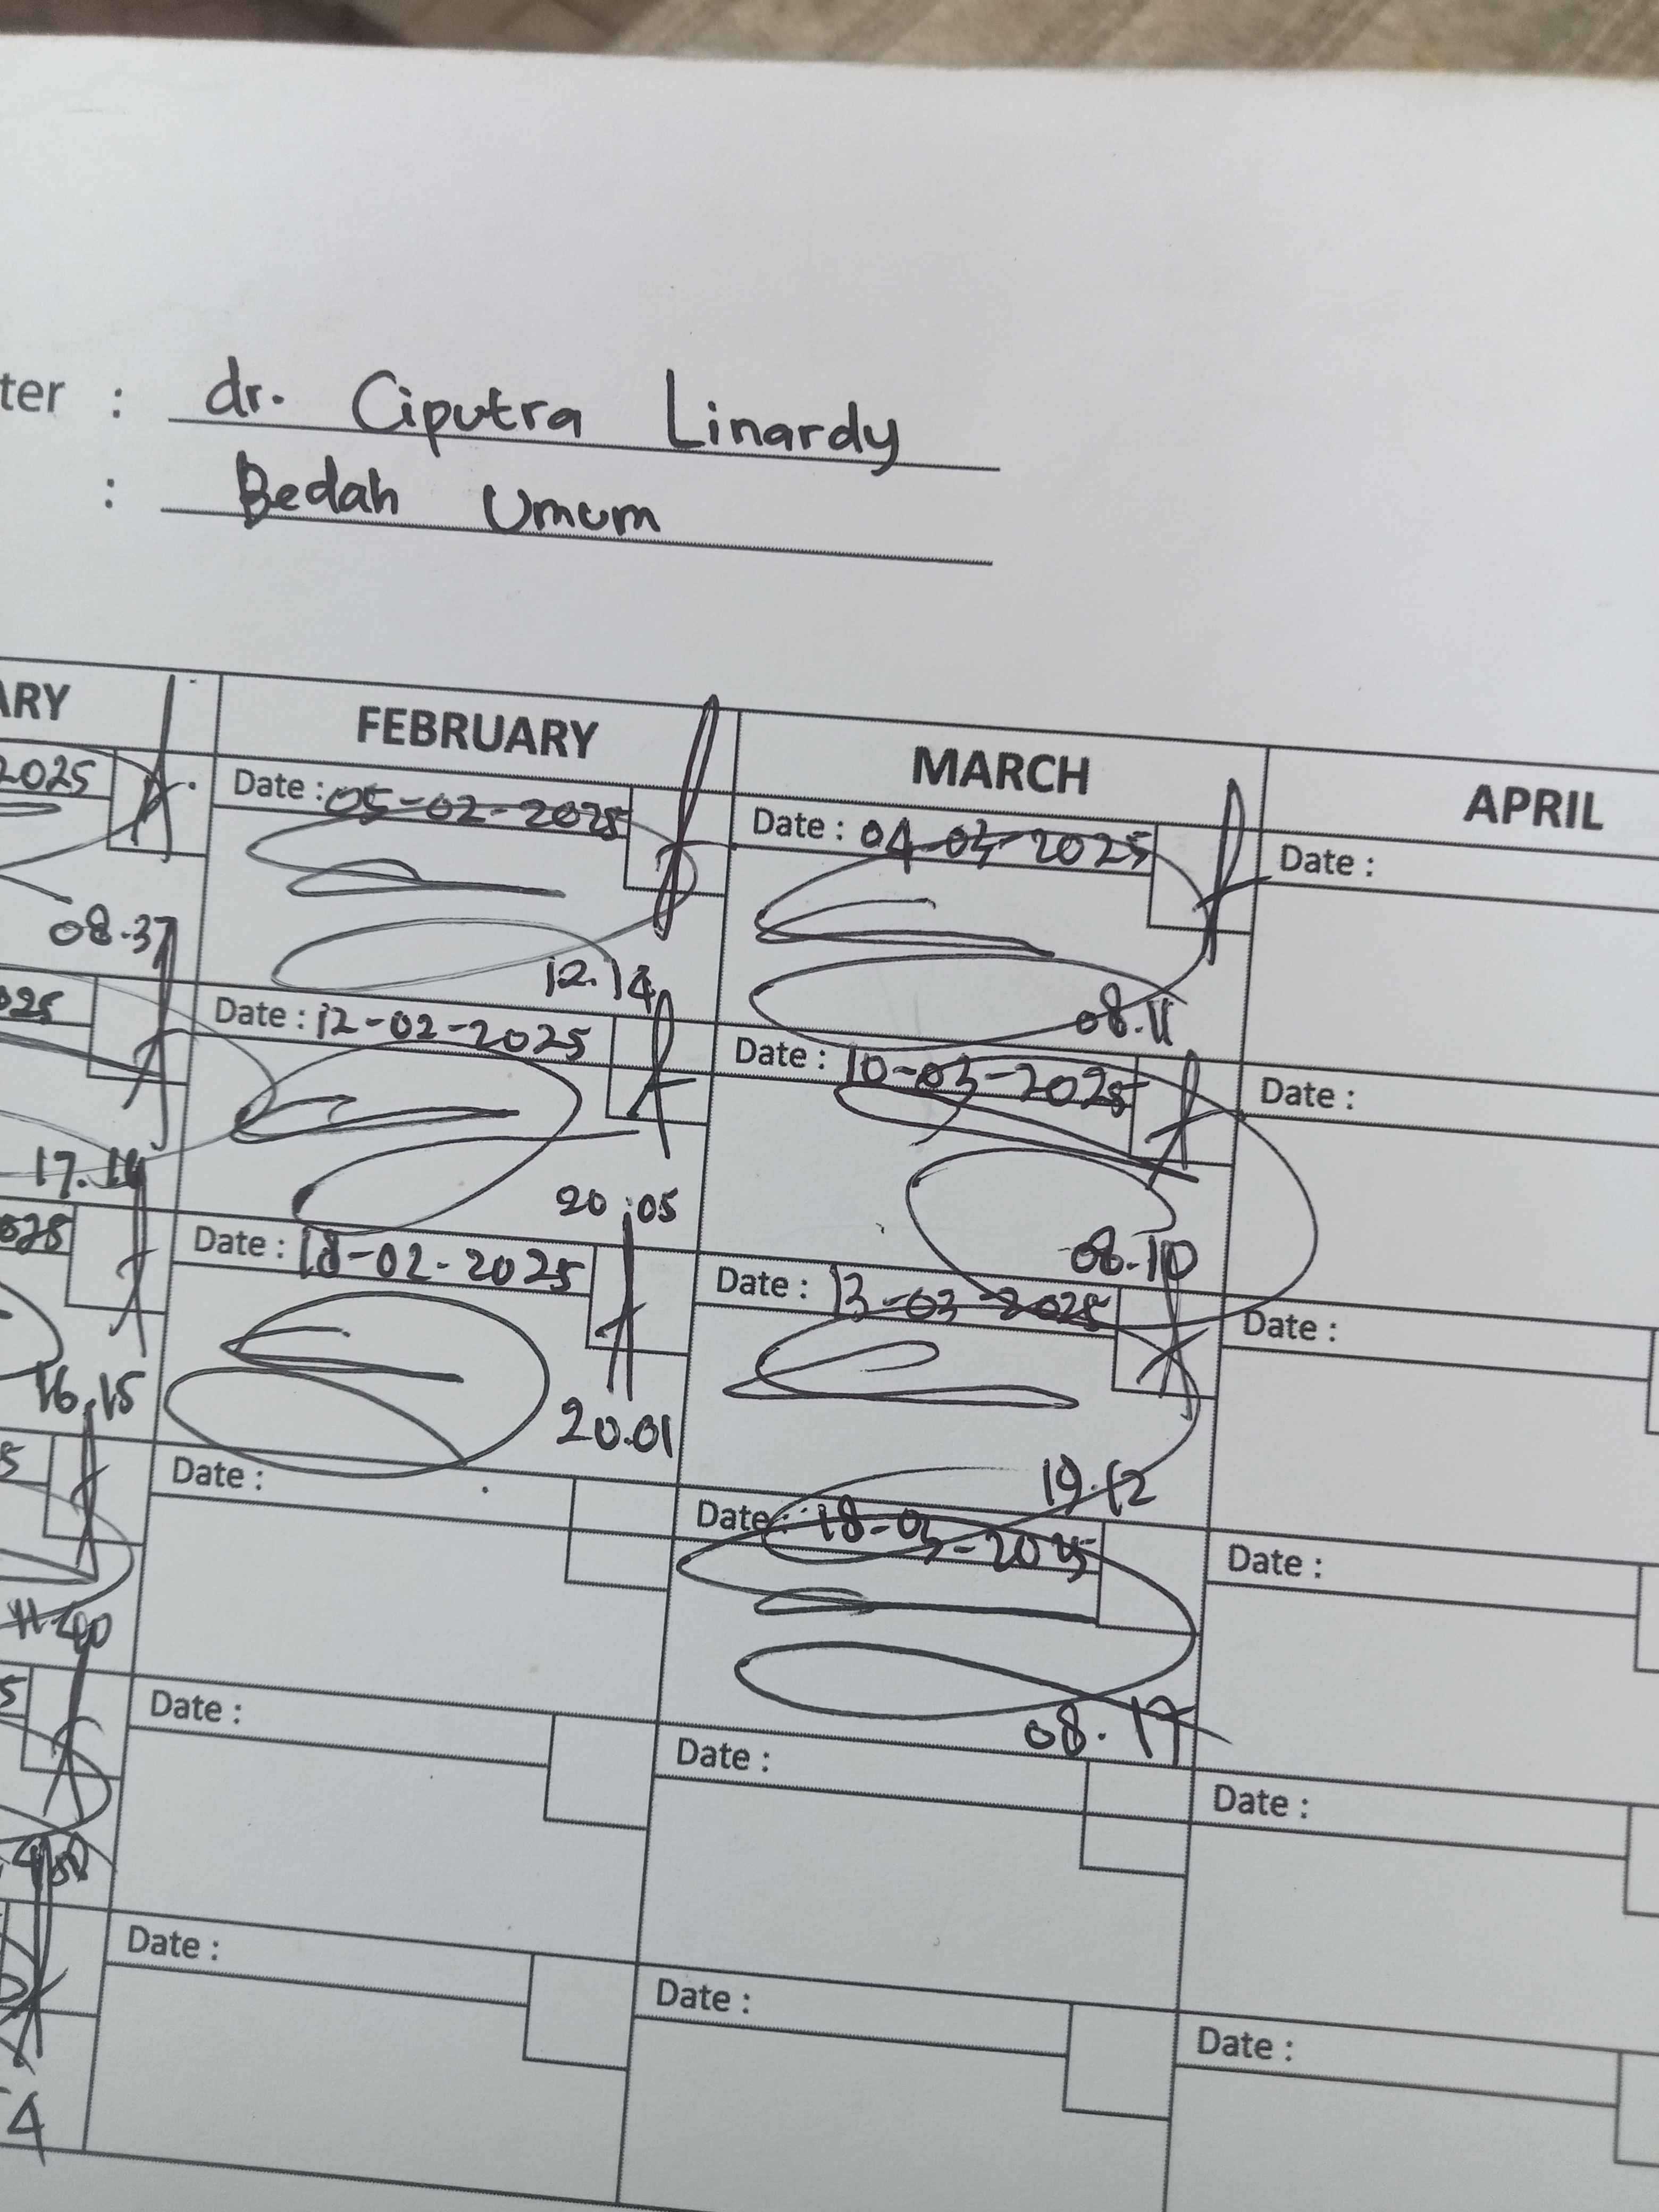 ter : dr. Ciputra Linardy
: Bedah Umum
ARY FEBRUARY MARCH APRIL
2025 Date : 05-02-2025 Date : 04-03-2025 Date :
08.37 12.14 08.11
025 Date : 12-02-2025 Date : 10-03-2025 Date :
17.14 20.05 08.10
025 Date : 18-02-2025 Date : 13-03-2025 Date :
16.15 20.01 19.12
5 Date : Date : 18-03-2025 Date :
08.17
5 Date : Date : Date :
Date : Date : Date :
4